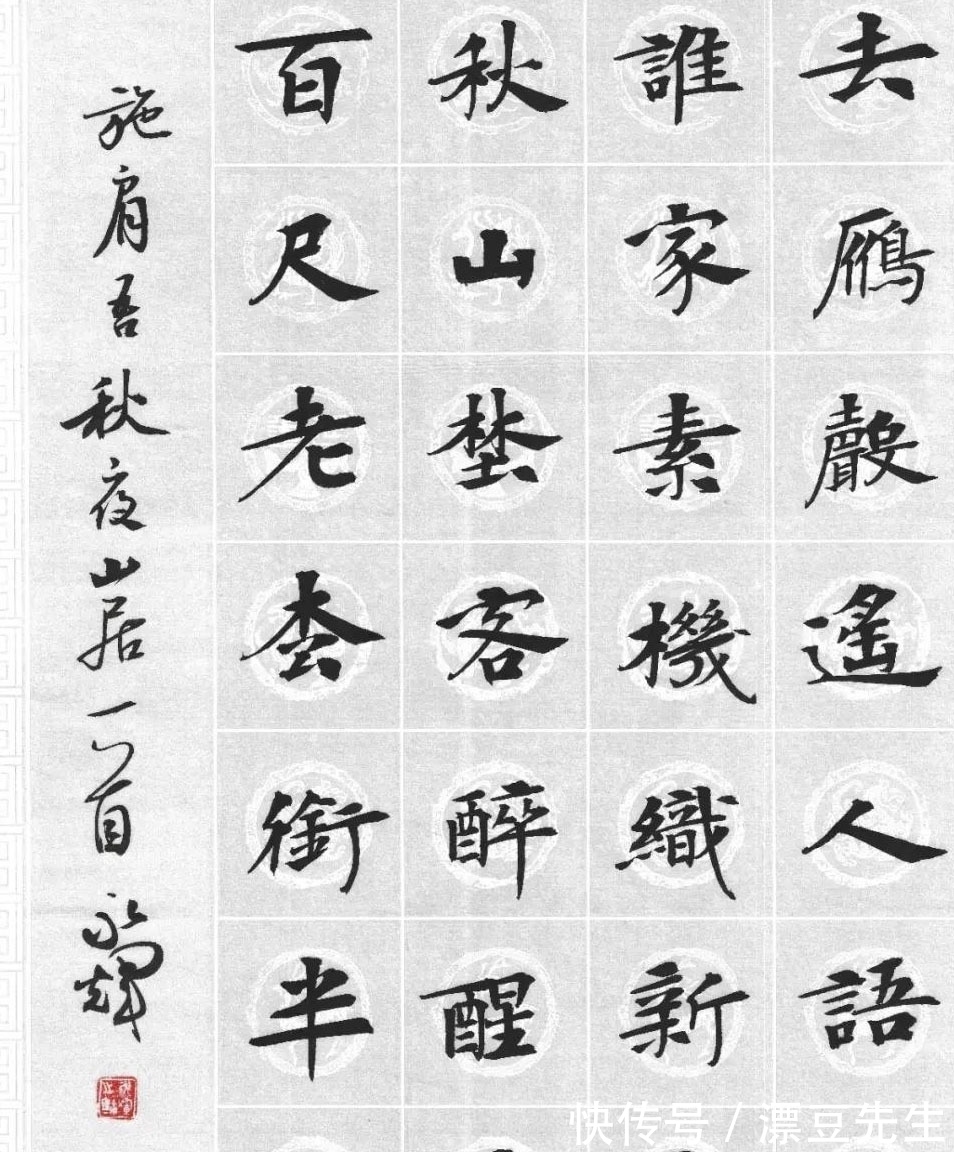 去鴈聲遙人語
誰家素機織新
秋山埜客醉醒
百尺老枩銜半
施肩吾秋夜山居一首 永輝
快传号 / 漂豆先生